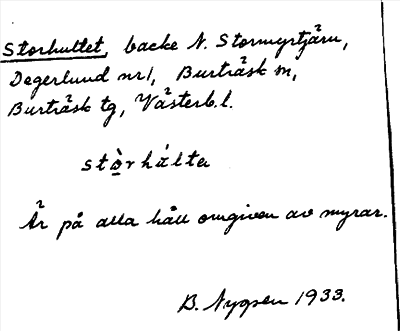 Storhultet, backe N. Stormyrtjärn,
Degerlund nr 1, Burträsk sn,
Burträsk tg, Västerb. l.
stọ̀rhálta
Är på alla håll omgiven av myrar.
B. Nygren 1933.